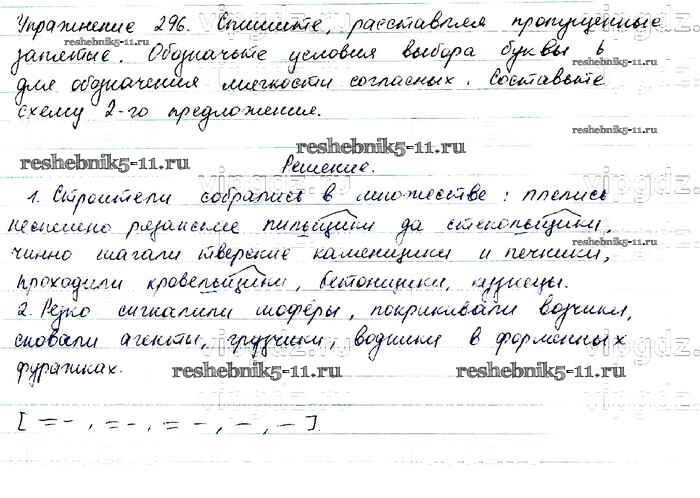 Упражнение 296. Спишите, расставляя пропущенные
запятые. Обозначьте условия выбора буквы ь
для обозначения мягкости согласных. Составьте
схему 2-го предложения.
reshebnik5-11.ru
reshebnik5-11.ru
reshebnik5-11.ru
reshebnik5-11.ru
reshebnik5-11.ru
Решение.
vipgdz.ru
1. Строители собрались в множестве: плелись
неспешно рязанские пильщики да стекольщики,
чинно шагали тверские каменщики и печники,
reshebnik5-11.ru
проходили кровельщики, бетонщики, кузнецы.
2. Резко сигналили шофёры, покрикивали возчики,
сновали агенты, грузчики, водники в форменных
фуражках.
reshebnik5-11.ru
reshebnik5-11.ru
vipgdz.ru
[ = – , = – , = – , – , – ].